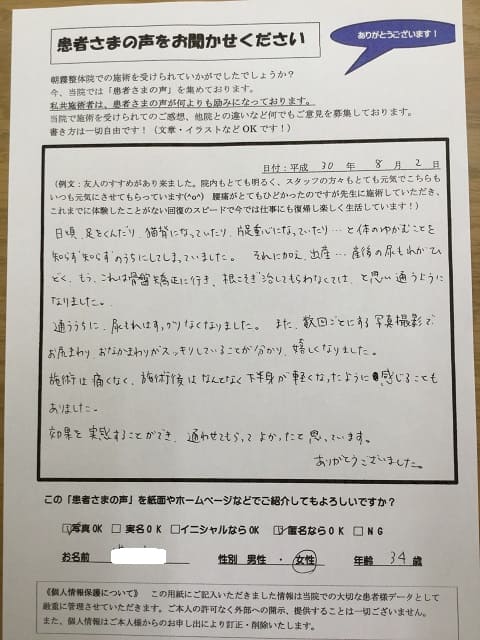 患者さまの声をお聞かせください
ありがとうございます！
朝霧整体院での施術を受けられていかがでしたでしょうか？
今、当院では「患者さまの声」を集めております。
私共施術者は、患者さまの声が何よりも励みになっております。
当院で施術を受けられてのご感想、他院との違いなど何でもご意見を募集しております。
書き方は一切自由です！（文章・イラストなどOKです！）
日付：平成 30 年 8 月 2 日
（例文：友人のすすめがあり来ました。院内もとても明るく、スタッフの方々もとても元気でこちらも
いつも元気にさせてもらっています(^o^) 腰痛がとてもひどかったのですが先生に施術していただき、
これまでに体験したことがない回復のスピードで今では仕事にも復帰し楽しく生活しています！）
日頃、足をくんだり、猫背になっていたり、片足重心になっていたり…と体のゆがむことを
知らず知らずのうちにしてしまっていました。 それに加え、出産…産後の尿もれがひ
どく、もう、これは骨盤矯正に行き、根こそぎ治してもらわなくては、と思い通うように
なりました。
通ううちに、尿もれはすっかりなくなりました。 また、数回ごとにする写真撮影で
お尻まわり、おなかまわりがスッキリしていることが分かり、嬉しくなりました。
施術は痛くなく、施術後はなんとなく下半身が軽くなったように感じることも
ありました。
効果を実感することができ、通わせてもらってよかったと思っています。
ありがとうございました。
この「患者さまの声」を紙面やホームページなどでご紹介してもよろしいですか？
☑写真OK □ 実名OK □イニシャルならOK ☑匿名ならOK □ NG
お名前 性別 男性 ・ 女性 年齢 34 歳
《個人情報保護について》 この用紙にご記入いただきました情報は当院での大切な患者様データとして
厳重に管理させていただきます。ご本人の許可なく外部への開示、提供することは一切ございません。
また、個人情報はご本人様からのお申し出により訂正・削除いたします。